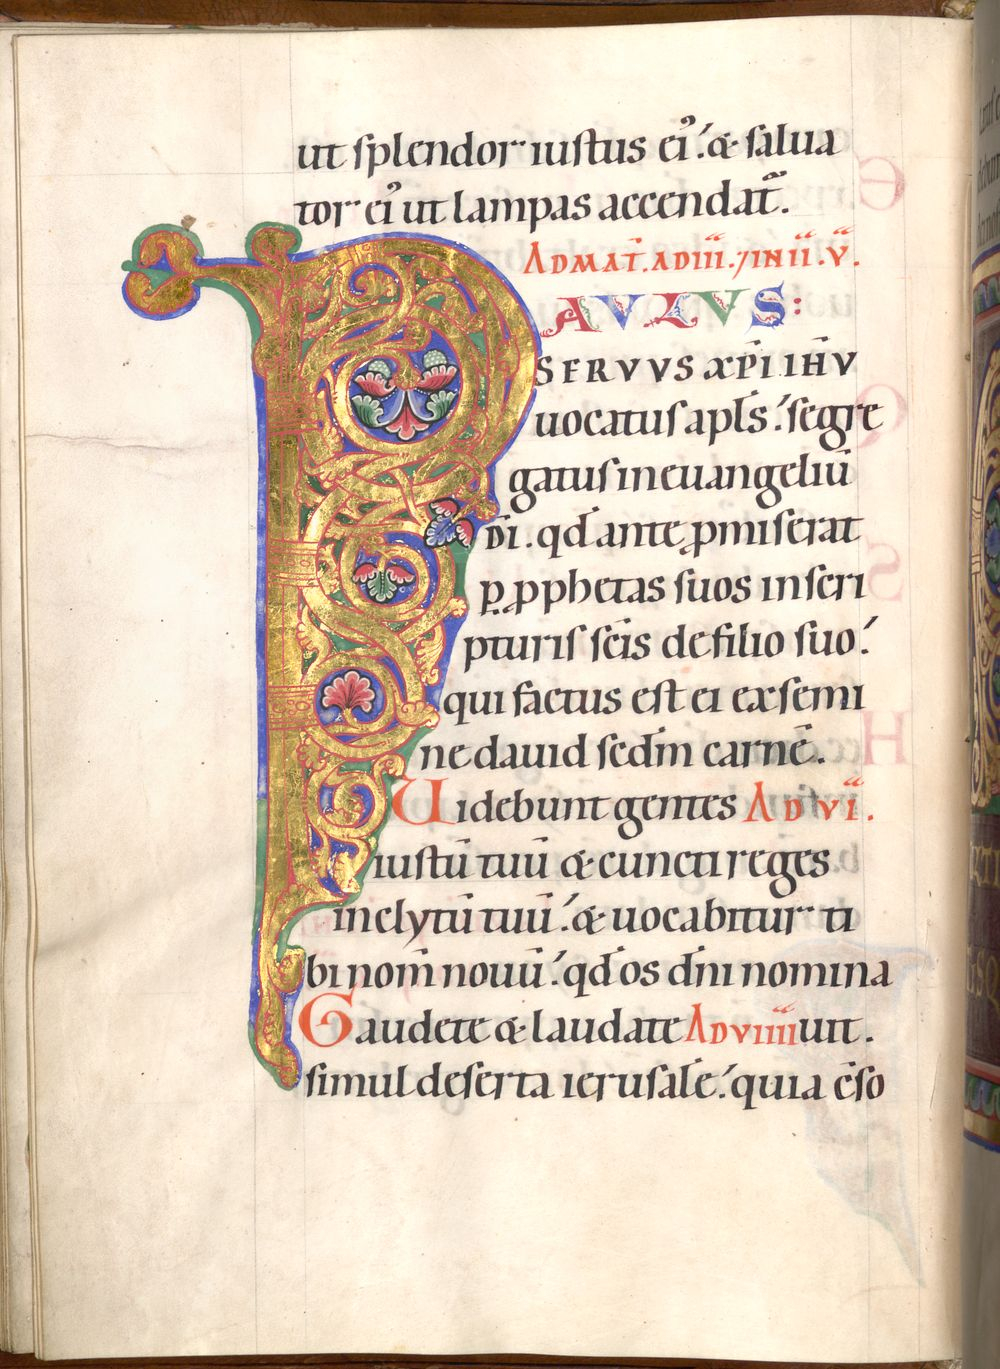 ut splendor iustus ei᾿ & salua
tor ei᾿ ut lampas accendat̄.
AD MAT̄. AD III. 7 IN II. V.
PAVLVS:
SERVVS XP̄I IH̄V
uocatus apl̄s. segre
gatus in euangeliū
D̄I. qd̄ ante p̱miserat
p̱ p̱phetas suos in scri
pturis sc̄is de filio suo.
qui factus est ei ex semi
ne dauid sed̄m carnē.
Uidebunt gentes AD VI.
iustū tuū & cuncti reges
inclytū tuū. & uocabitur ti
bi nom̄ nouū. qd̄ os dn̄i nomina
Gaudete & laudate AD VIIII uit.
simul deserta ierusalē. quia c̄so